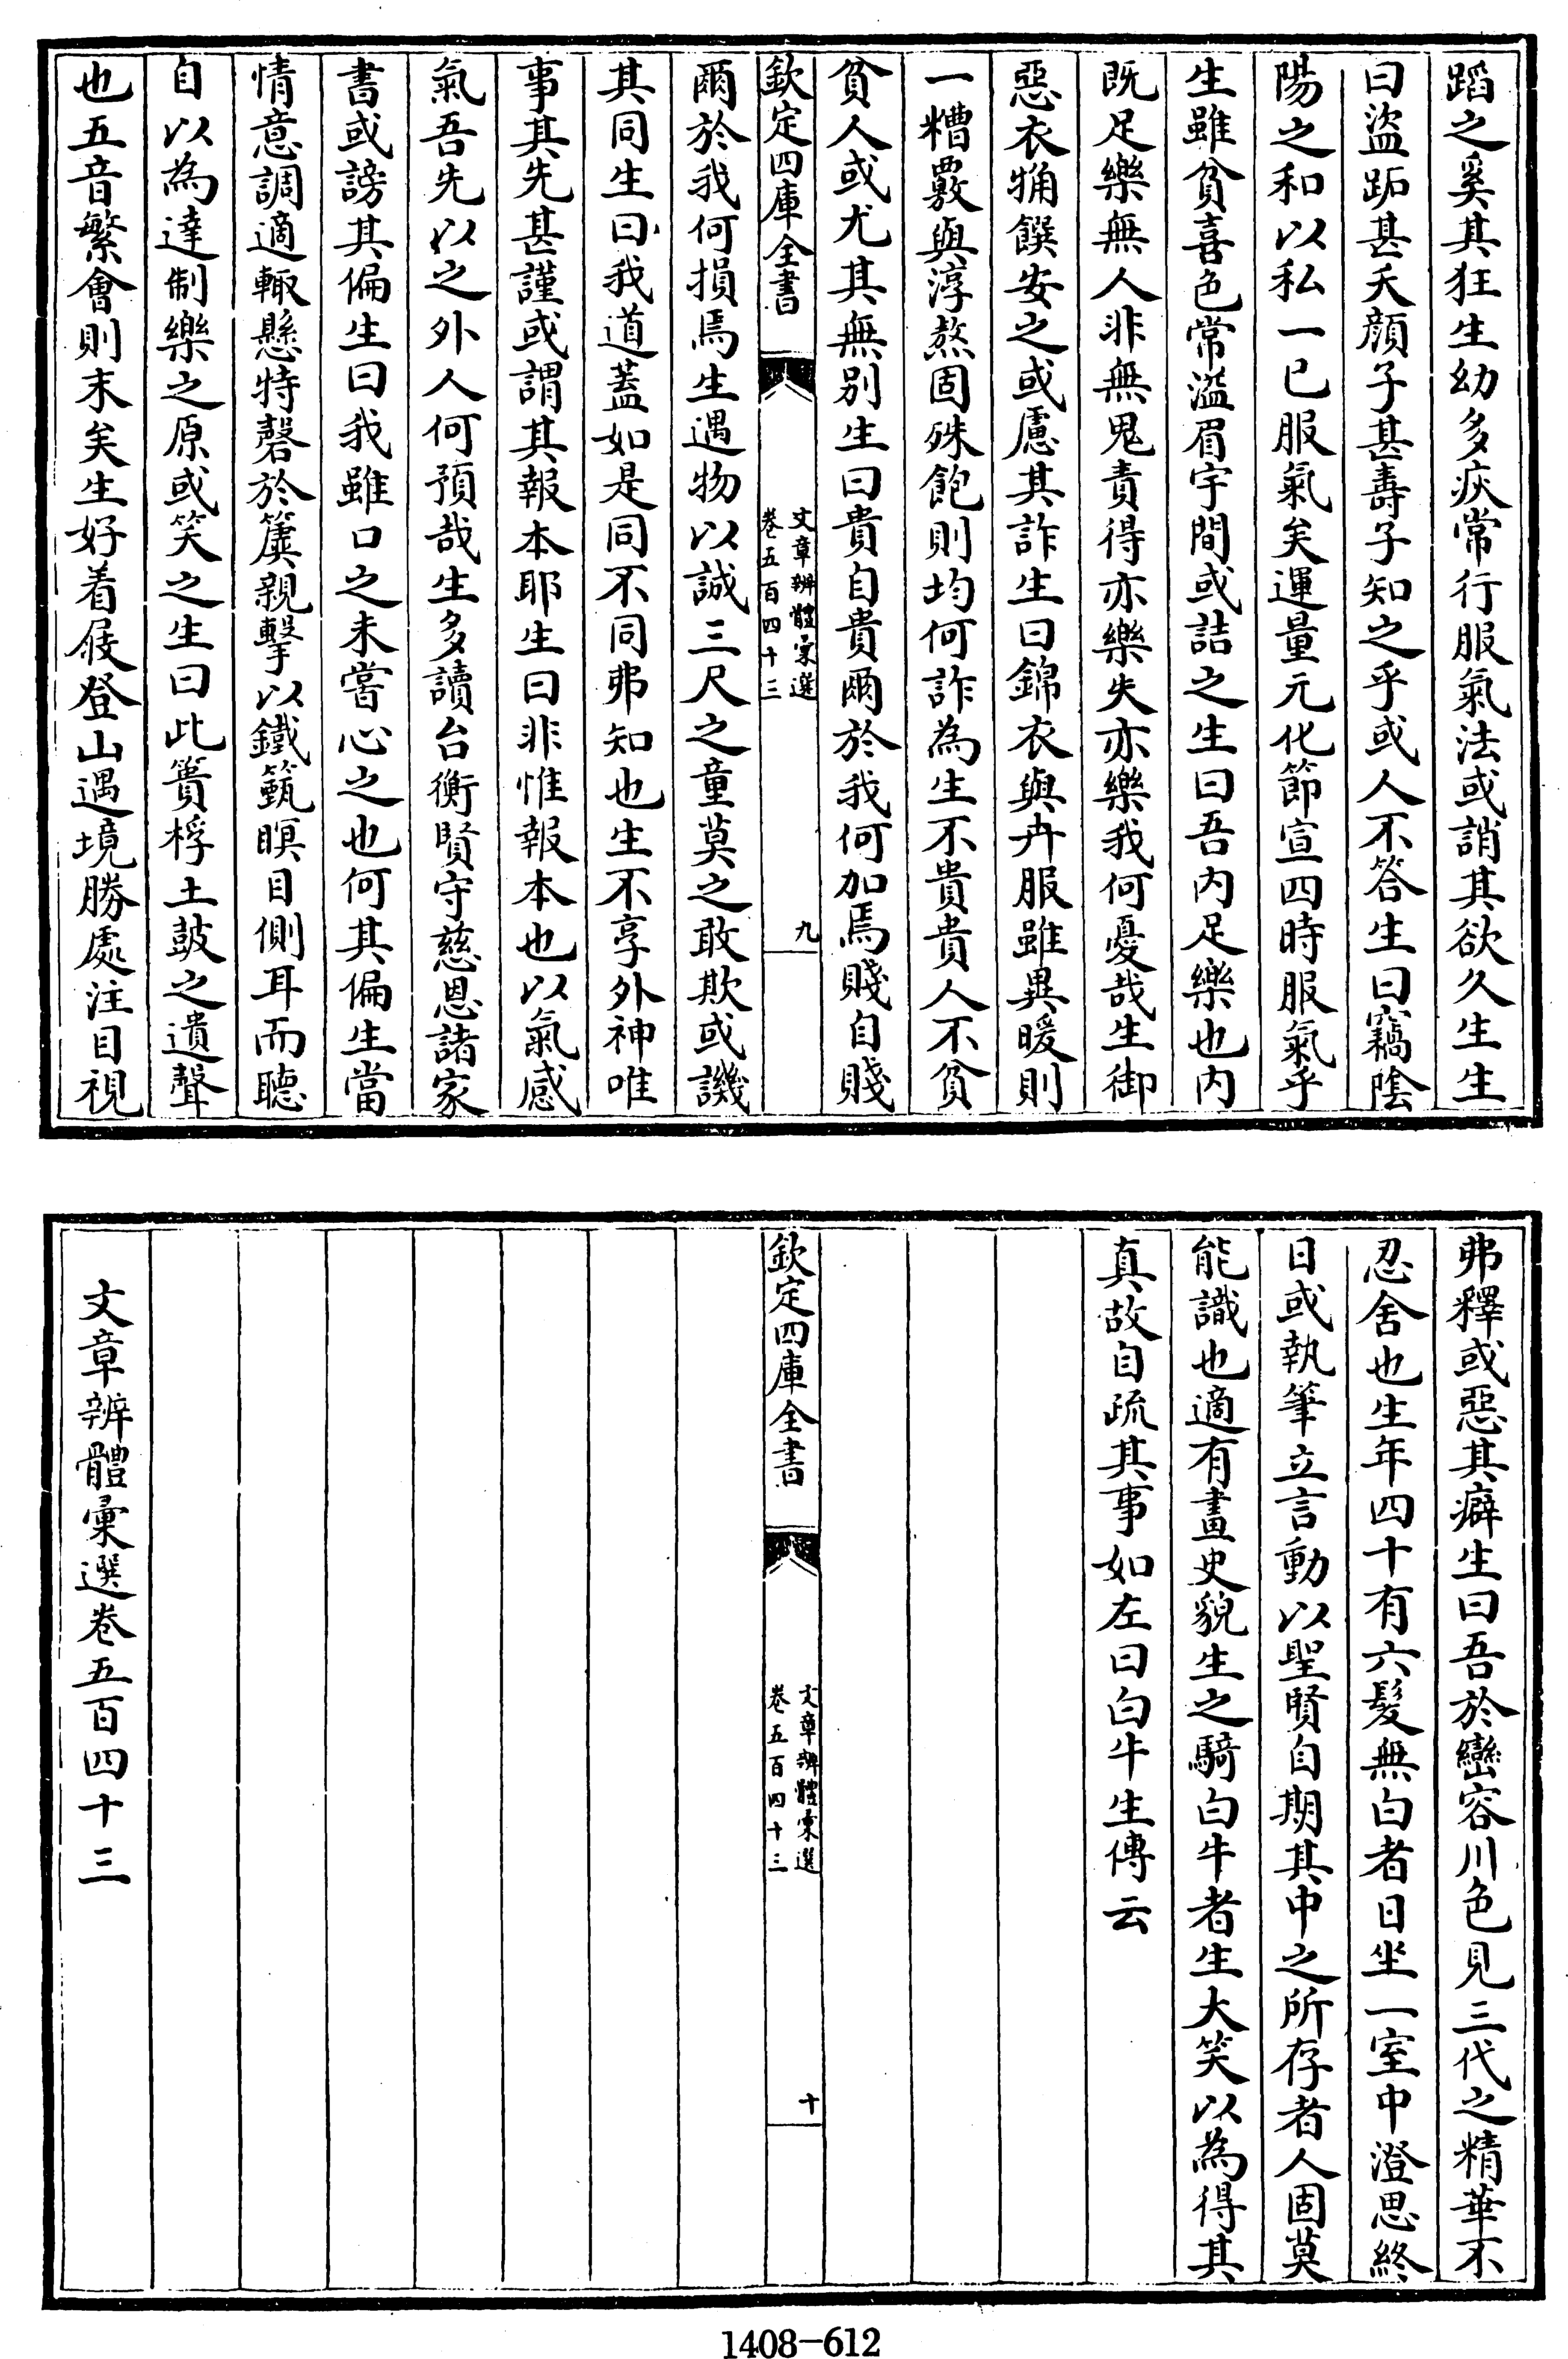 蹈之奚其狂生幼多疢常行服氣法或誚其欲久生生
曰盜跖甚夭顔子甚壽子知之乎或人不答生曰竊陰
陽之和以私一已服氣矣運量元化節宣四時服氣乎
生雖貧喜色常溢眉宇間或詰之生曰吾内足樂也内
既足樂無人非無鬼責得亦樂失亦樂我何憂哉生御
惡衣觕饌安之或慮其詐生曰錦衣與卉服雖異暖則
一糟覈與淳熬固殊飽則均何詐為生不貴貴人不貧
貧人或尤其無别生曰貴自貴爾於我何加焉賤自賤
欽定四庫全書
文章辨體彙選
卷五百四十三
九
爾於我何損焉生遇物以誠三尺之童莫之敢欺或譏
其同生曰我道蓋如是同不同弗知也生不享外神唯
事其先甚謹或謂其報本耶生曰非惟報本也以氣感
氣吾先以之外人何預哉生多讀台衡賢守慈恩諸家
書或謗其偏生曰我雖口之未嘗心之也何其偏生當
情意調適輒懸特磬於簴親擊以鐵甀瞑目側耳而聽
自以為達制樂之原或笑之生曰此簣桴土鼓之遺聲
也五音繁會則末矣生好着屐登山遇境勝處注目視
弗釋或惡其癖生曰吾於巒容川色見三代之精華不
忍舍也生年四十有六髮無白者日坐一室中澄思終
日或執筆立言動以聖賢自期其中之所存者人固莫
能識也適有畫史貌生之騎白牛者生大笑以為得其
真故自疏其事如左曰白牛生傳云
欽定四庫全書
文章辨體彙選
卷五百四十三
十
文章辨體彙選卷五百四十三
1408-612